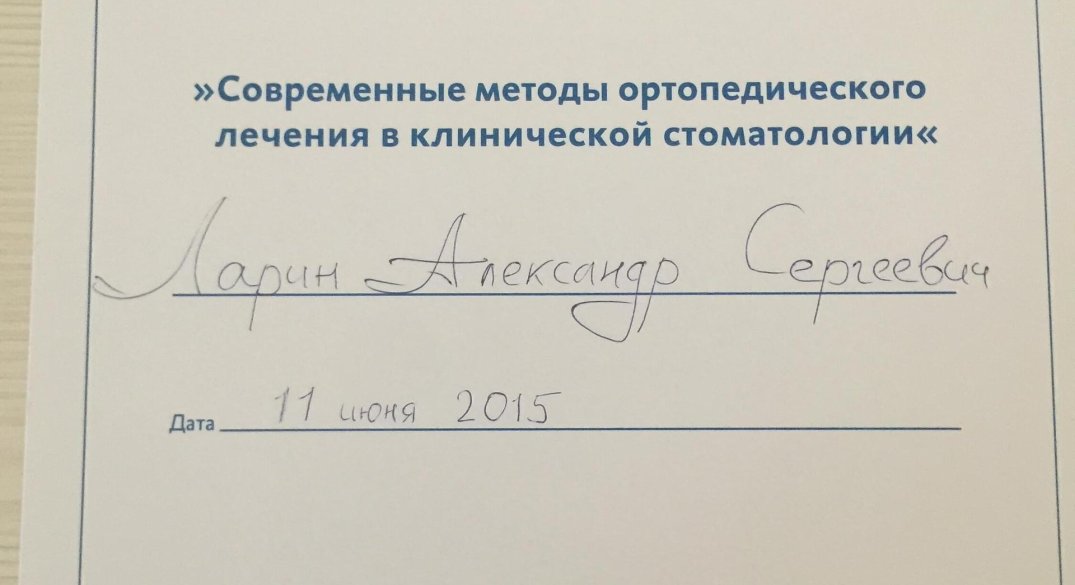 »Современные методы ортопедического
лечения в клинической стоматологии«
Ларин Александр Сергеевич
Дата 11 июня 2015